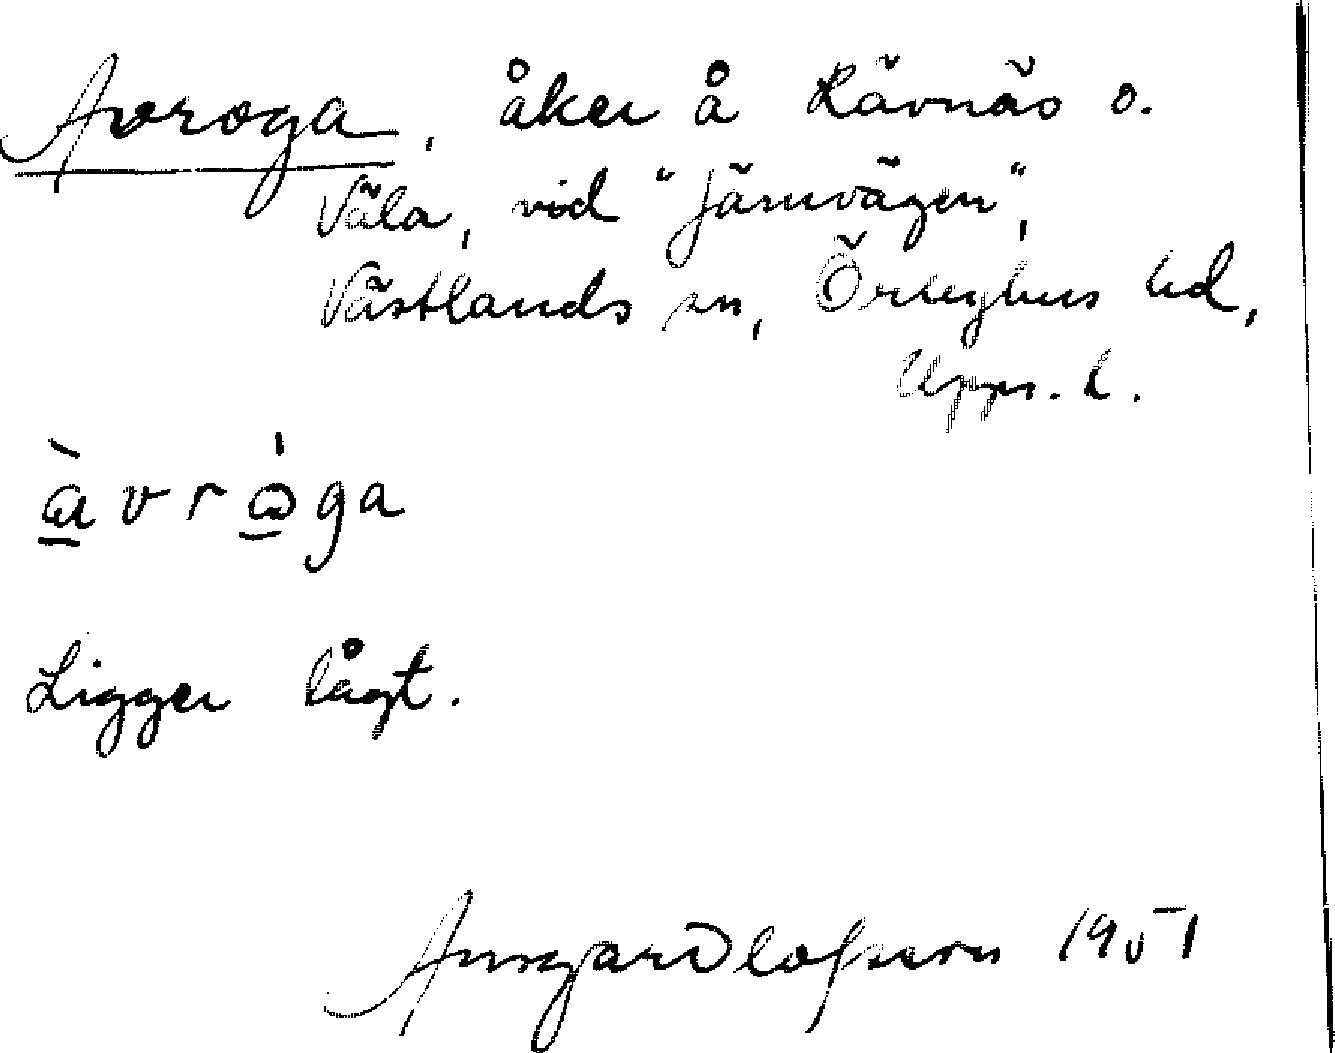 Avroga, åker å Lövnäs o.
Väla, vid "Järnvägen",
Västlands sn, Örbyhus hd,
Upps. l.
àvròga
Ligger lågt.
Ansgar Olofsson 1951